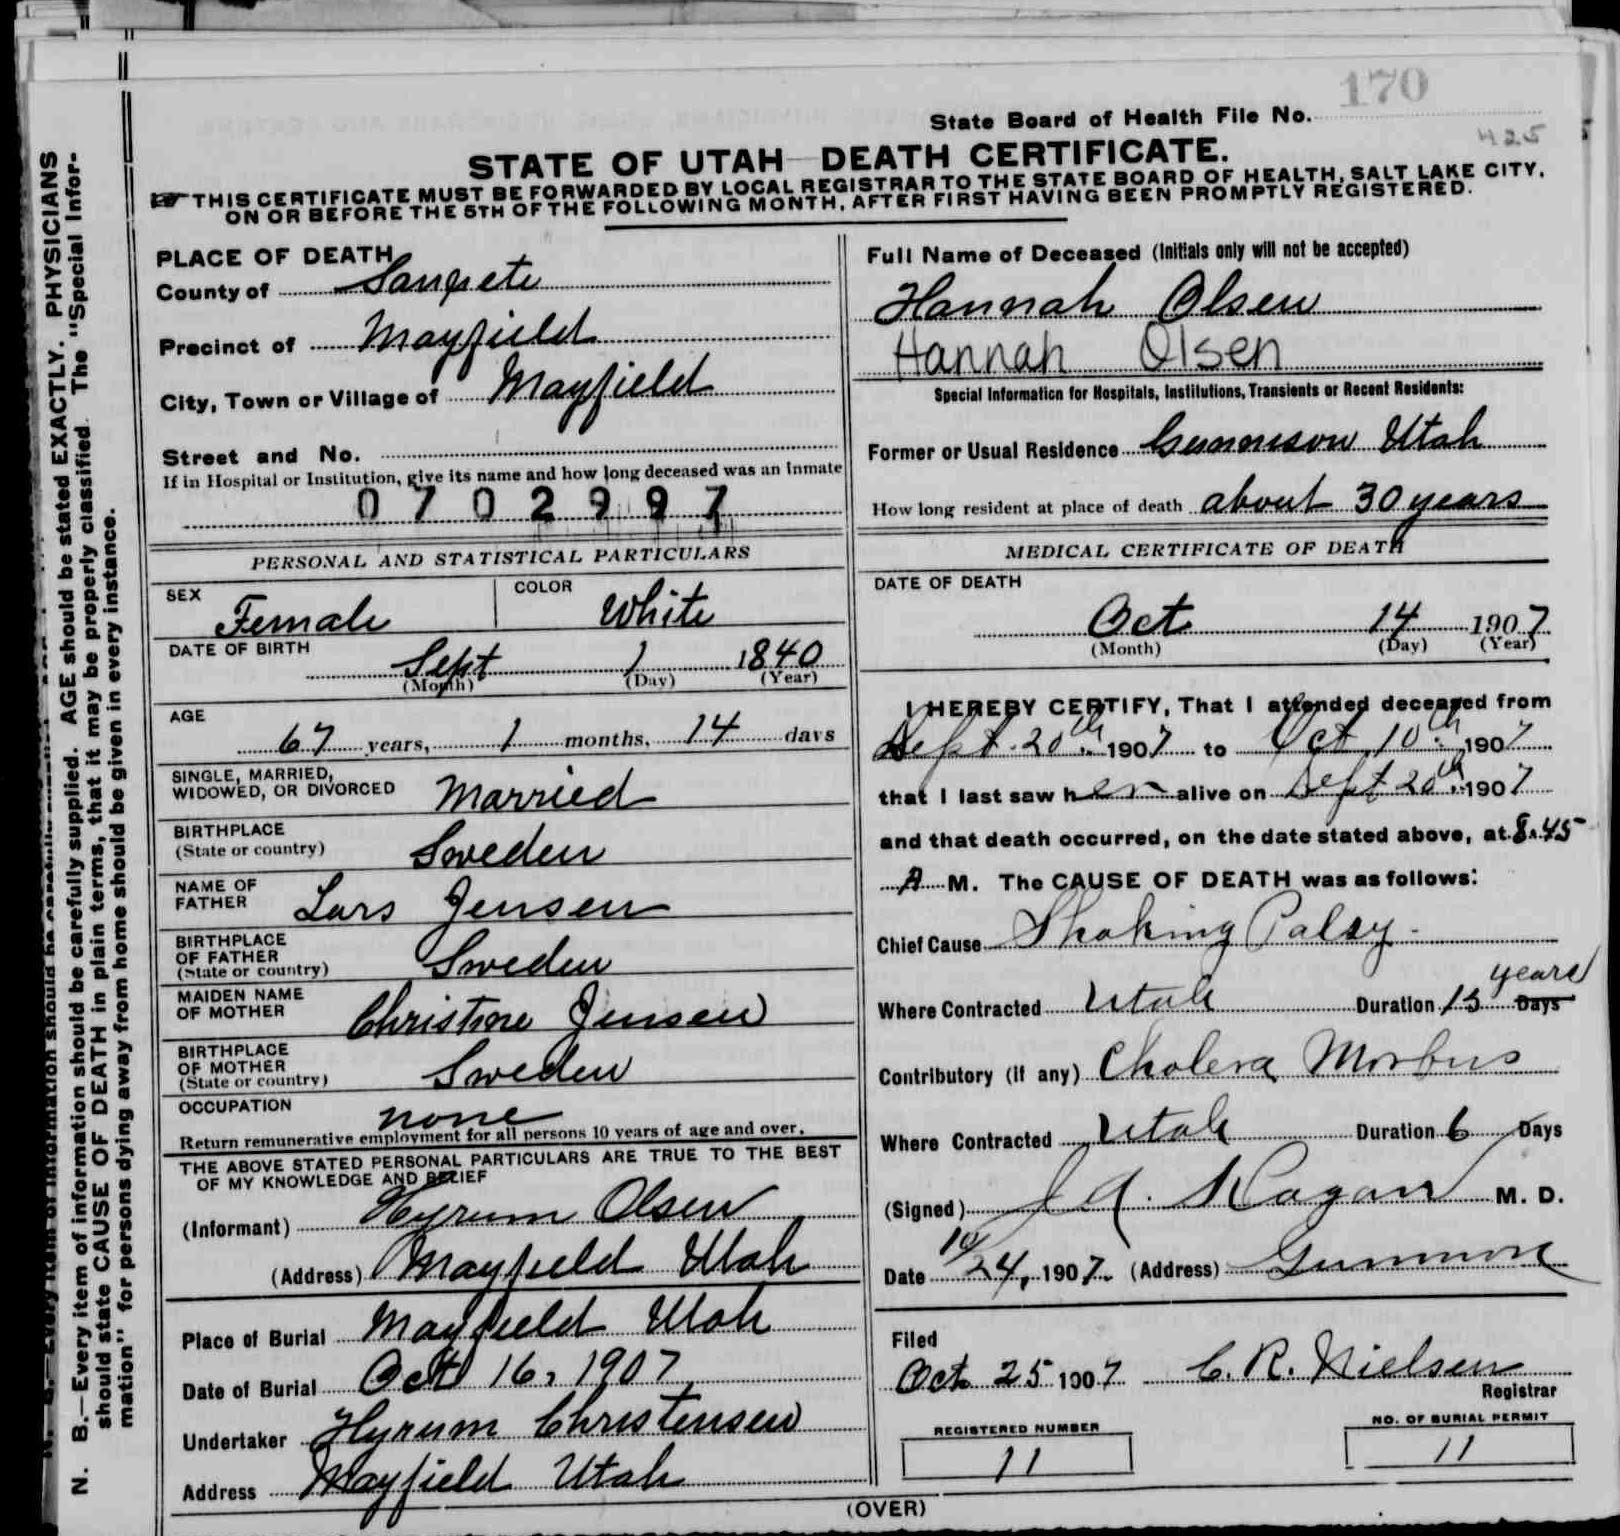 170
State Board of Health File No.
425
STATE OF UTAH DEATH CERTIFICATE.
THIS CERTIFICATE MUST BE FORWARDED BY LOCAL REGISTRAR TO THE STATE BOARD OF HEALTH, SALT LAKE CITY,
ON OR BEFORE THE 5TH OF THE FOLLOWING MONTH, AFTER FIRST HAVING BEEN PROMPTLY REGISTERED.
N. B.—Every item of information should be carefully supplied. AGE should be stated EXACTLY. PHYSICIANS
should state CAUSE OF DEATH in plain terms, that it may be properly classified. The "Special Infor-
mation" for persons dying away from home should be given in every instance.
PLACE OF DEATH
County of Sanpete
Precinct of Mayfield
City, Town or Village of Mayfield
Street and No.
If in Hospital or Institution, give its name and how long deceased was an inmate
0702997
PERSONAL AND STATISTICAL PARTICULARS
SEX Female COLOR White
DATE OF BIRTH Sept 1 1840
(Month) (Day) (Year)
AGE
67 years, 1 months, 14 days
SINGLE, MARRIED,
WIDOWED, OR DIVORCED Married
BIRTHPLACE
(State or country) Sweden
NAME OF
FATHER Lars Jensen
BIRTHPLACE
OF FATHER
(State or country) Sweden
MAIDEN NAME
OF MOTHER Christine Jensen
BIRTHPLACE
OF MOTHER
(State or country) Sweden
OCCUPATION none
Return remunerative employment for all persons 10 years of age and over.
THE ABOVE STATED PERSONAL PARTICULARS ARE TRUE TO THE BEST
OF MY KNOWLEDGE AND BELIEF
(Informant) Hyrum Olsen
(Address) Mayfield Utah
Place of Burial Mayfield Utah
Date of Burial Oct 16, 1907
Undertaker Hyrum Christensen
Address Mayfield Utah
Full Name of Deceased (Initials only will not be accepted)
Hannah Olsen
Hannah Olsen
Special Information for Hospitals, Institutions, Transients or Recent Residents:
Former or Usual Residence Gunnison Utah
How long resident at place of death about 30 years
MEDICAL CERTIFICATE OF DEATH
DATE OF DEATH
Oct 14 1907
(Month) (Day) (Year)
I HEREBY CERTIFY, That I attended deceased from
Sept. 20th 1907 to Oct 10th 1907
that I last saw her alive on Sept 20th 1907
and that death occurred, on the date stated above, at 8.45
A M. The CAUSE OF DEATH was as follows:
Chief Cause Shaking Palsy
years
Where Contracted Utah Duration 15 Days
Contributory (if any) Cholera Morbus
Where Contracted Utah Duration 6 Days
(Signed) M. D.
Date 10/24, 1907. (Address) Gunnison
Filed
Oct 25 1907 C. R. Nielsen
Registrar
REGISTERED NUMBER
11
NO. OF BURIAL PERMIT
11
(OVER)